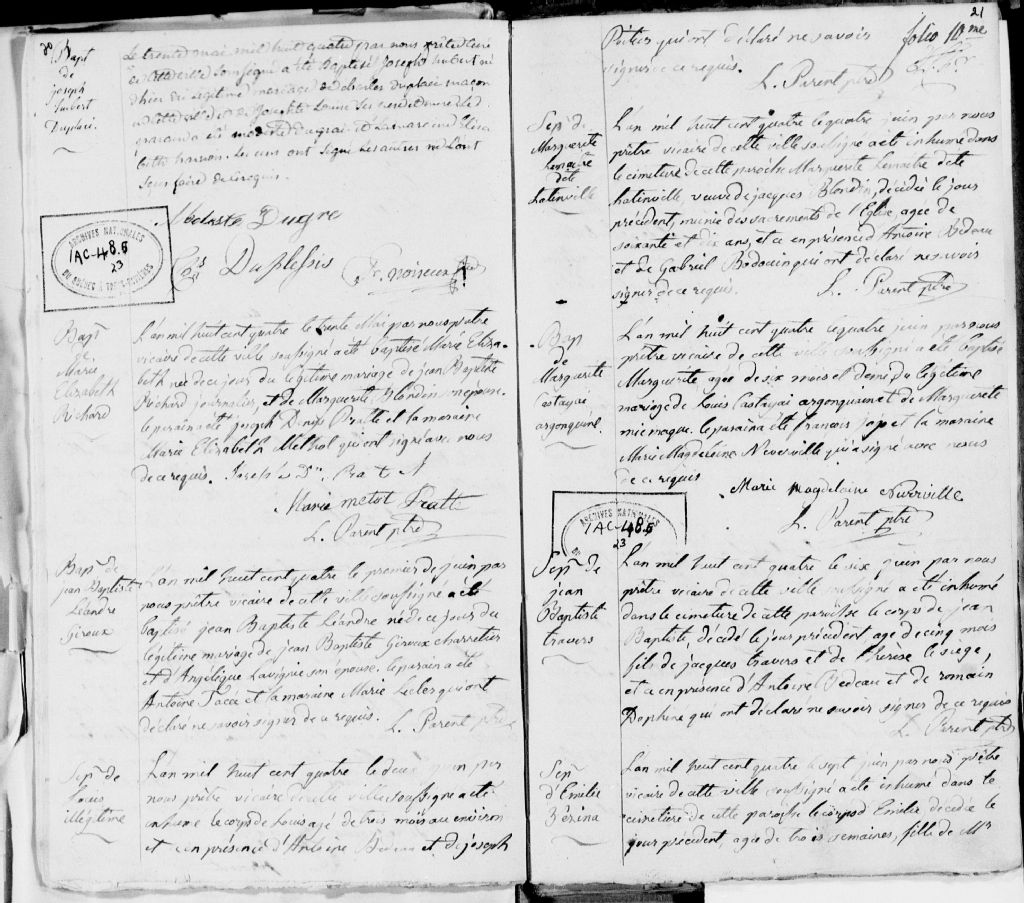 Bapt
de
joseph
hubert
Duplaci.
Le trente mai mil huit quatre par nous prêtre curé
de cette ville Soussigné a été Baptisé Joseph hubert né
hier du légitime mariage de charles duplaci maçon
ont Signé Les autres
Sous faire de ce requis.
Modeste Dugre
Duplessis
Fs. noiseux
ARCHIVES NATIONALES
1AC-48.6
23
DU QUÉBEC À TROIS-RIVIÈRES
Bapt
de
Marie
Elizabeth
Richard
L'an mil huit cent quatre le trente Mai par nous prêtre
vicaire de cette ville soussigné a été baptisé Marie Eliza-
beth née de ce jour du légitime mariage de jean Baptiste
Richard journalier, et de Marguerite Blondin son épouse.
le parain a été joseph Denis Pratte et la maraine
Marie Elizabeth Methot qui ont signé avec nous
de ce requis. Joseph Ds Pratt
Marie metot Pratte
L. Parent ptre
Bap. de
jean Baptiste
Léandre
Giroux
L'an mil huit cent quatre le premier de juin par
nous prêtre vicaire de cette ville soussigné a été
baptisé jean Baptiste Léandre né de ce jour du
légitime mariage de jean Baptiste Giroux charretier
et d'Angélique Lavignie son épouse. le parain a été
Antoine Paca et la maraine Marie Leclerc qui ont
déclaré ne savoir signer de ce requis. L. Parent ptre
Sep. de
Louis
illégitime
L'an mil huit cent quatre le deux juin par
nous prêtre vicaire de cette ville soussigné a été
inhumé le corps de Louis agé de trois mois au environ
et ce en présence d'Antoine Bedeau et de joseph
21
folio 19me
qui ont déclaré ne savoir
signer de ce requis.
L. Parent ptre
Sep. de
Marguerite
Lemaitre
dete
Latinville
L'an mil huit cent quatre le quatre juin par nous
prêtre vicaire de cette ville soussigné a été inhumé dans
le cimetiere de cette paroisse Marguerite Lemaitre dete
Latinville, veuve de jacques Blondin, décédée le jour
précédent, munie des sacrements de l'Eglise, agée de
soixante et dix ans, et ce en présence d'Antoine Bedeau
et de Gabriel Bodouin qui ont déclaré ne savoir
signer de ce requis. L. Parent ptre
Bap
de
Marguerite
Castagai
argonquine.
L'an mil huit cent quatre le quatre juin par nous
prêtre vicaire de cette ville soussigné a été baptisé
Marguerite agée de six mois et demi du légitime
mariage de Louis Castagai argonquain et de Marguerite
micmaque. le parain a été françois joji et la maraine
Marie Magdeleine Neverville qui a signé avec nous
de ce requis
Marie Magdelaine Nevrville
L. Parent ptre
ARCHIVES NATIONALES
1AC-48.6
23
Sep. de
jean
Baptiste
travers
L'an mil huit cent quatre le six juin par nous
prêtre vicaire de cette ville soussigné a été inhumé
dans le cimetiere de cette paroisse le corps de jean
Baptiste décédé le jour précédent agé de cinq mois
fils de jacques travers et de thérèse lesiege,
et ce en présence d'Antoine Bedeau et de romain
Dophiné qui ont declaré ne savoir signer de ce requis
L. Parent ptre
Sep.
d'Emilie
Bézina
L'an mil huit cent quatre le sept juin par nous prêtre
vicaire de cette ville soussigné a été inhumé dans le
cimetiere de cette paroisse le corps d'Emilie décédée le
jour précédent, agée de trois semaines, fille de Mr